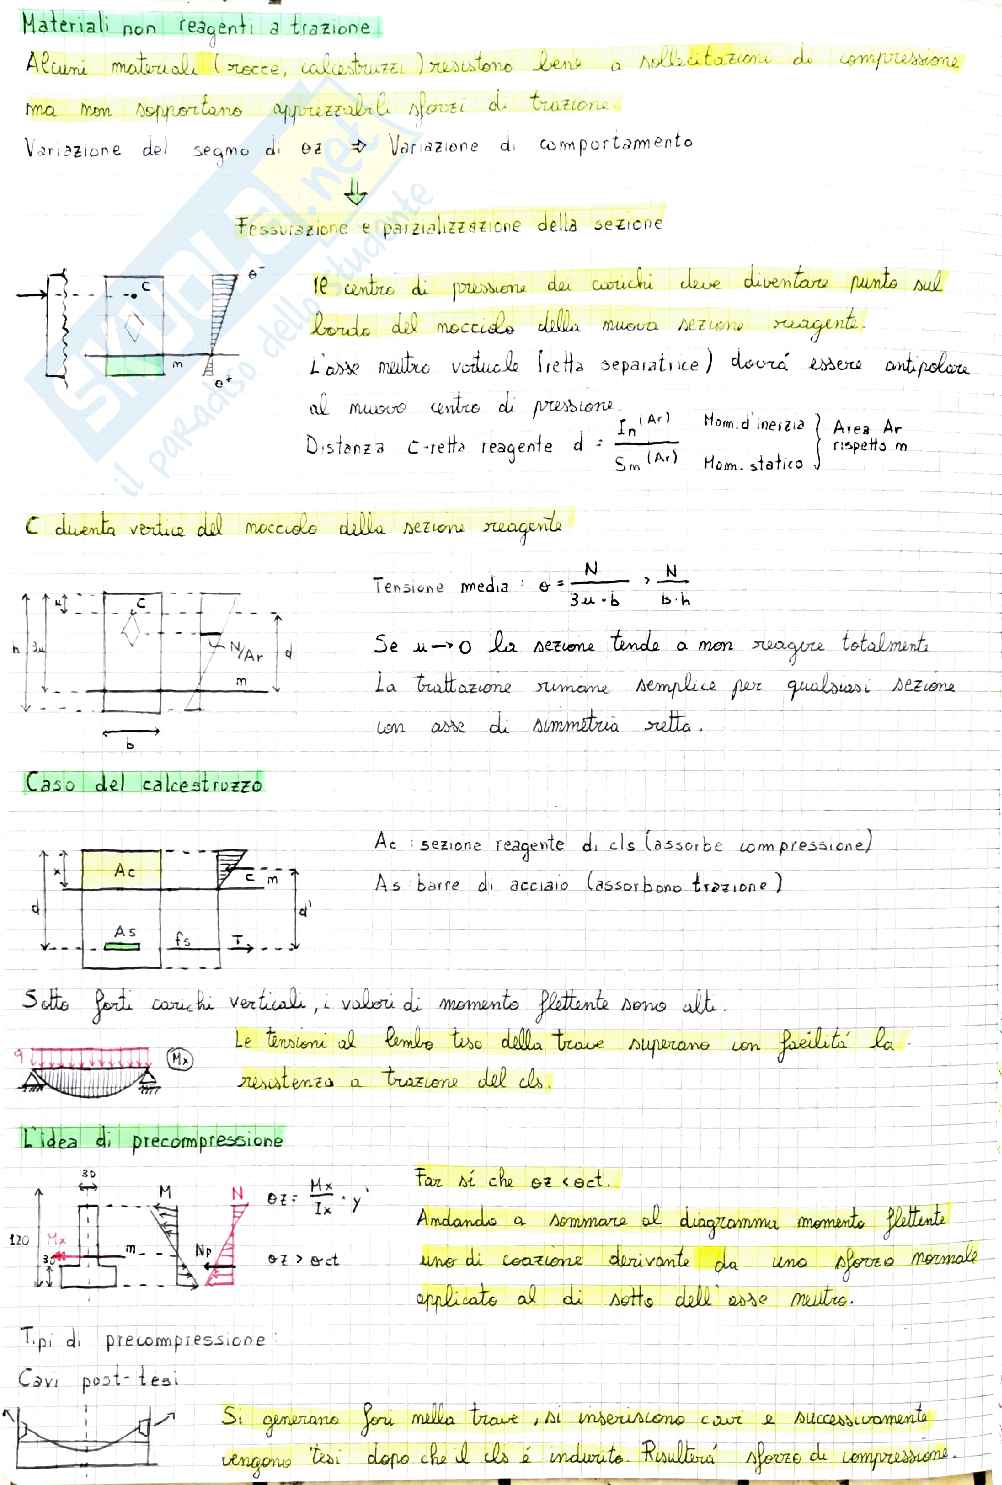 Materiali non reagenti a trazione
Alcuni materiali (rocce, calcestruzzi) resistono bene a sollecitazioni di compressione
ma non sopportano apprezzabili sforzi di trazione.
Variazione del segno di σz ⇒ Variazione di comportamento
⇓
Fessurazione e parzializzazione della sezione
C
m
σ⁻
σ⁺
Il centro di pressione dei carichi deve diventare punto sul
bordo del nocciolo della nuova sezione reagente.
L'asse neutro virtuale (retta separatrice) dovrá essere antipolare
al nuovo centro di pressione.
Distanza C-retta reagente d = In(Ar) / Sm(Ar)
Mom. d'inerzia
Mom. statico
Area Ar
rispetto m
C diventa vertice del nocciolo della sezione reagente
h
3u
u
C
N/Ar
m
d
b
Tensione media: σ = N / 3u·b > N / B·h
Se u→0 la sezione tende a non reagire totalmente
La trattazione rimane semplice per qualsiasi sezione
con asse di simmetria retta.
Caso del calcestruzzo
x
d
Ac
As
fs
C
m
T
d'
Ac: sezione reagente di cls (assorbe compressione)
As: barre di acciaio (assorbono trazione)
Sotto forti carichi verticali, i valori di momento flettente sono alti.
q
Mx
Le tensioni al lembo teso della trave superano con facilitá la
resistenza a trazione del cls.
L'idea di precompressione
30
120
Mx
30
m
M
N
Np
σz = Mx / Ix · y'
σz > σct
Far sí che σz < σct.
Andando a sommare al diagramma momento flettente
uno di coazione derivante da uno sforzo normale
applicato al di sotto dell'asse neutro.
Tipi di precompressione:
Cavi post-tesi
Si generano fori nella trave, si inseriscono cavi e successivamente
vengono tesi dopo che il cls é indurito. Risulterá sforzo di compressione.
SKUOLA.net
il paradiso dello studente